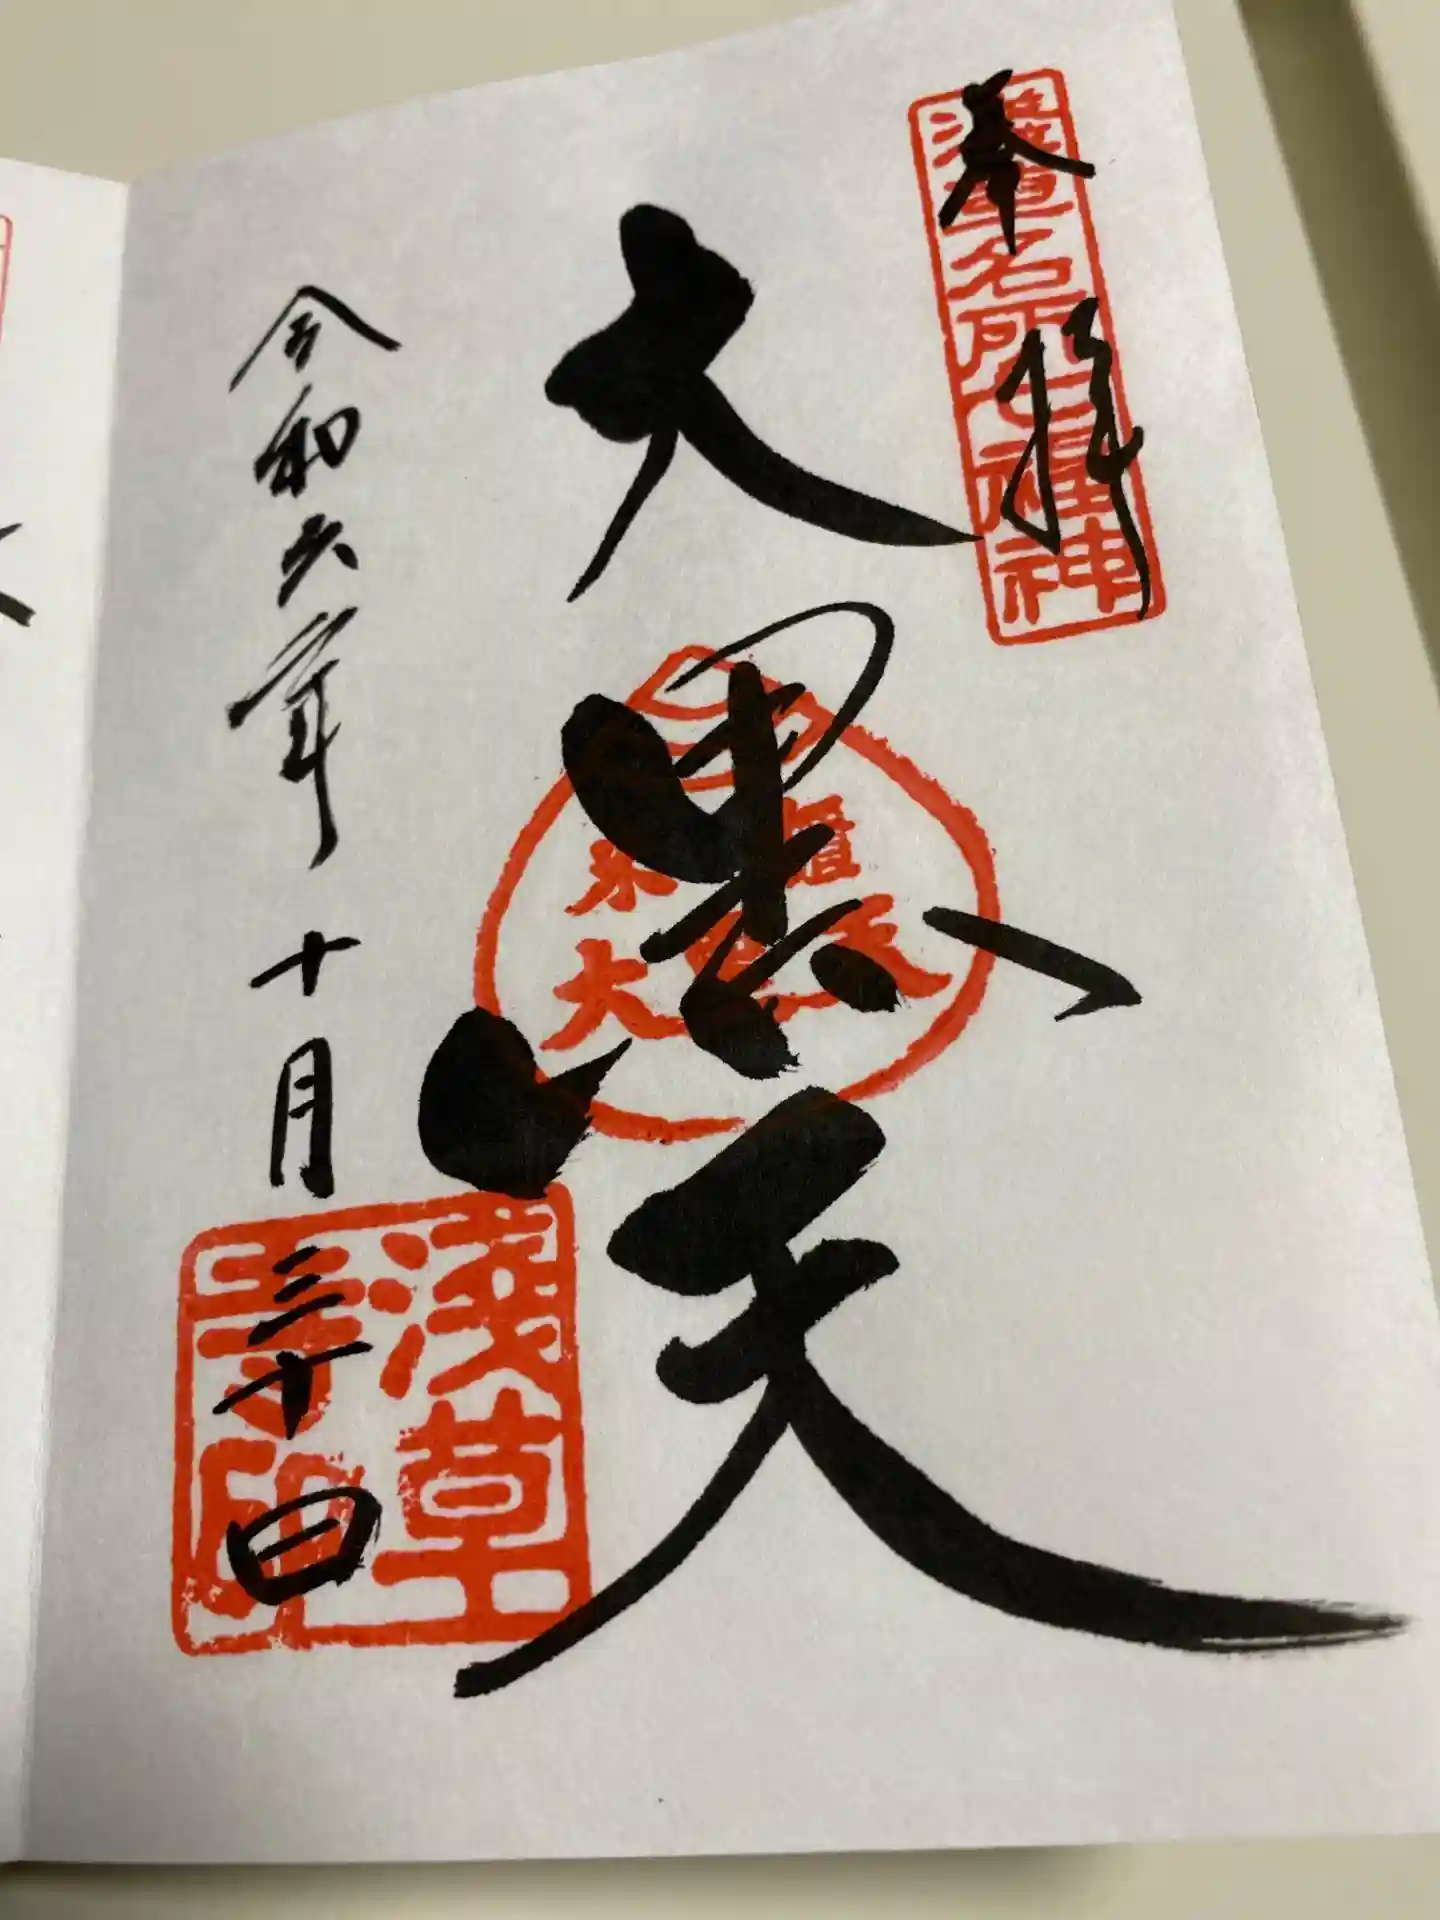 奉拝
浅草名所七福神
大黒天
米櫃
大黒天
令和六年十月三十日
浅草
寺印